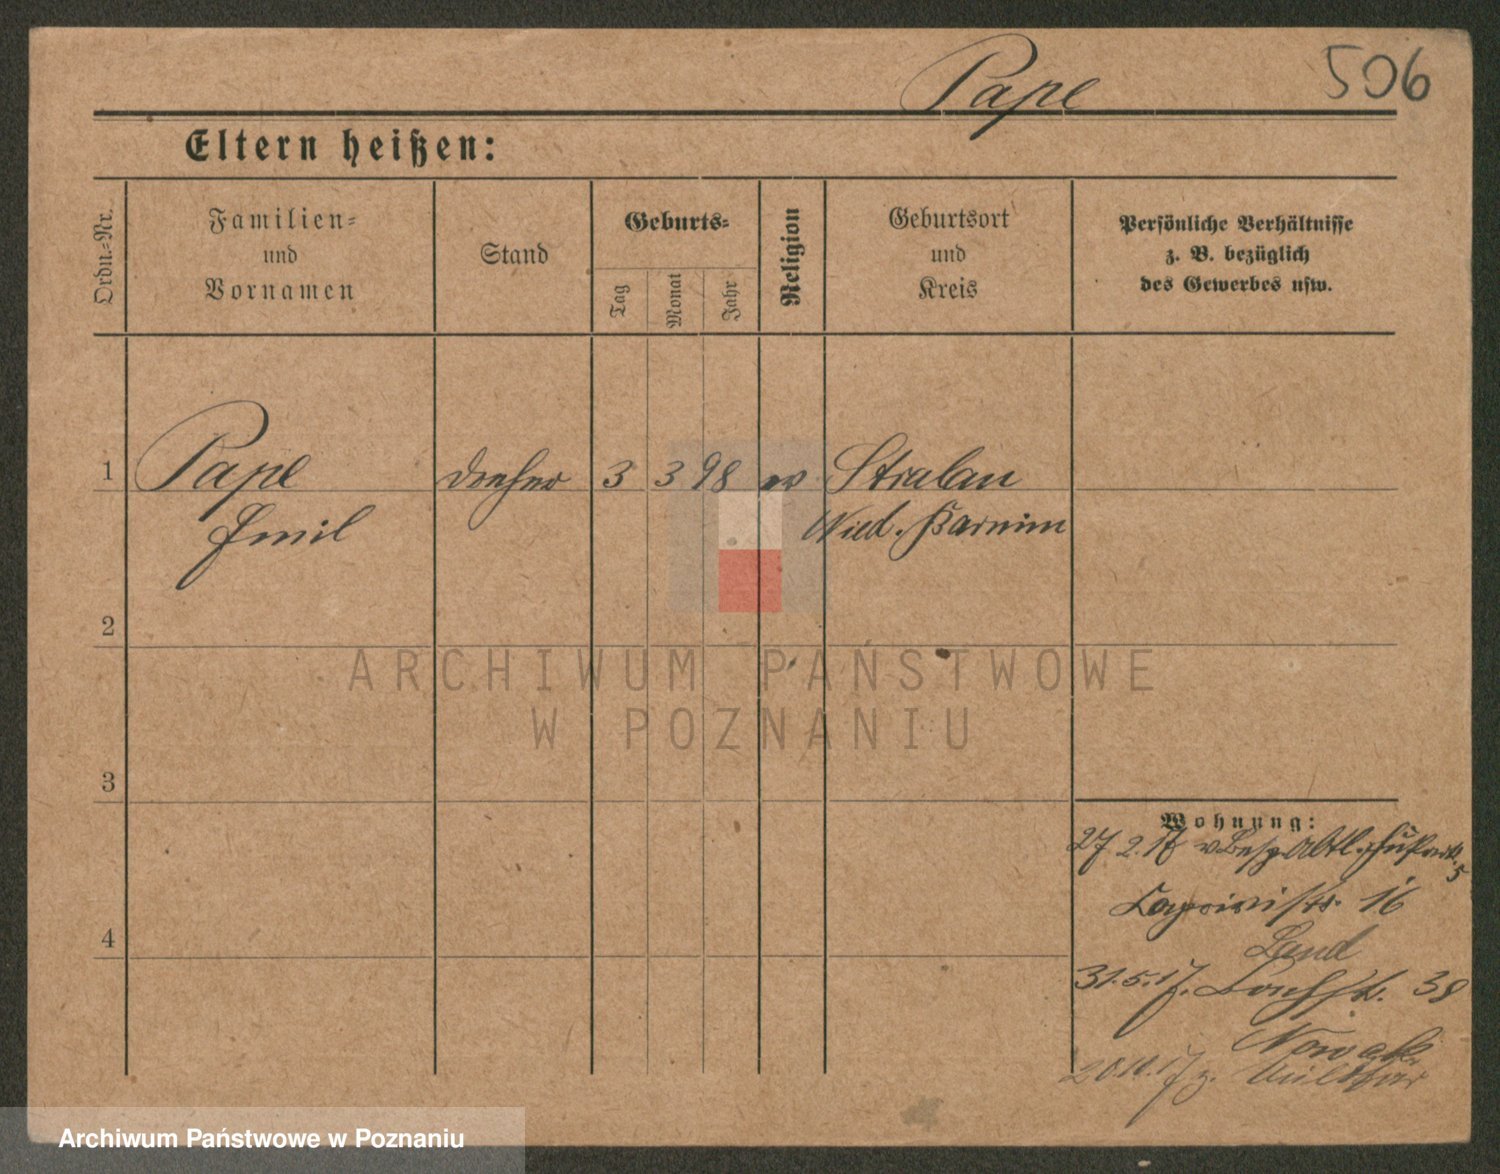 Pape
506
Eltern heißen:
Ordn.-Nr.
Familien-
und
Vornamen
Stand
Geburts-
Tag
Monat
Jahr
Religion
Geburtsort
und
Kreis
Persönliche Verhältnisse
z. B. bezüglich
des Gewerbes usw.
1 Pape Dreher 3 3 98 ev Stralau
Emil Nied. Barnim
2
3
4
Wohnung:
27.2.17 v.
16
Land
31.5.17. 38
Nowak
20.10.17 z. Militär
ARCHIWUM PAŃSTWOWE
W POZNANIU
Archiwum Państwowe w Poznaniu